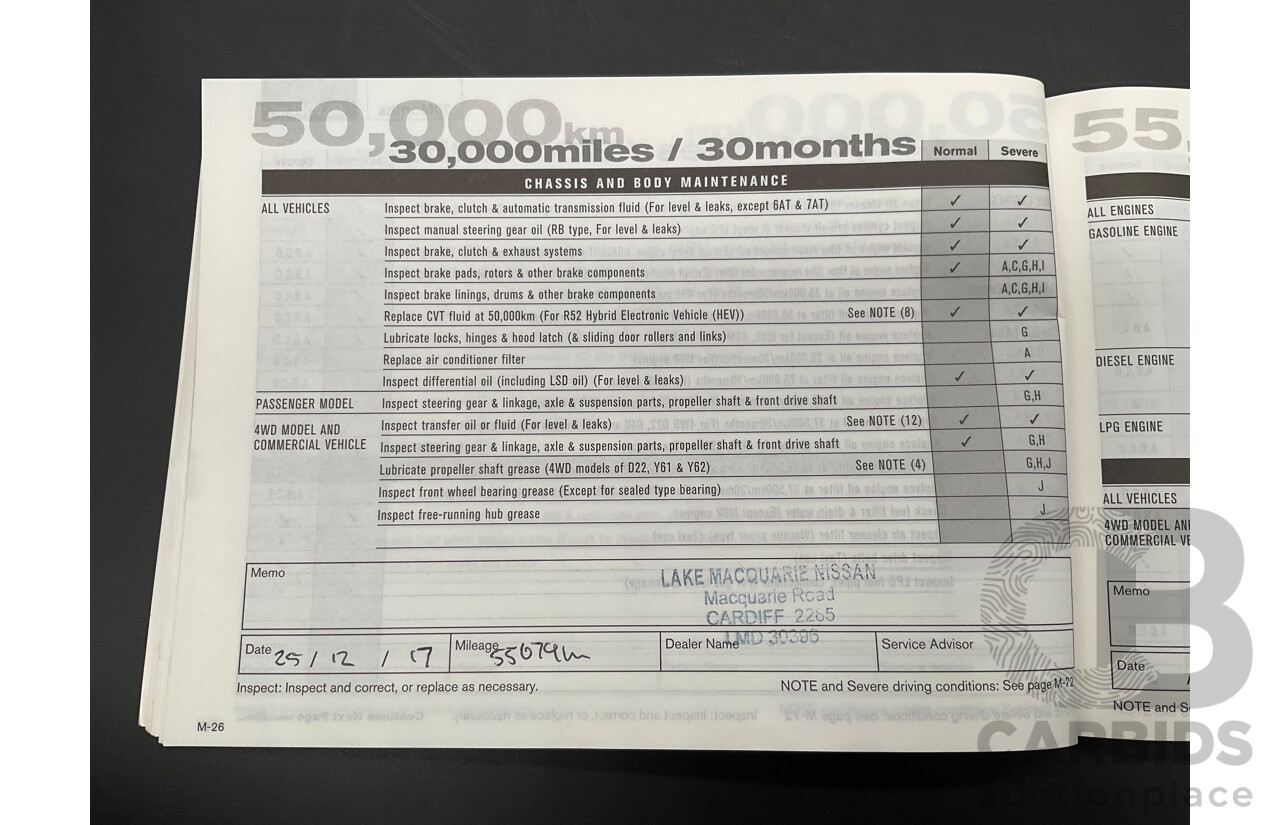 50,000km
30,000miles / 30months
Normal Severe
CHASSIS AND BODY MAINTENANCE
ALL VEHICLES Inspect brake, clutch & automatic transmission fluid (For level & leaks, except 6AT & 7AT) ✓ ✓
Inspect manual steering gear oil (RB type, For level & leaks) ✓ ✓
Inspect brake, clutch & exhaust systems ✓ ✓
Inspect brake pads, rotors & other brake components ✓ A,C,G,H,I
Inspect brake linings, drums & other brake components A,C,G,H,I
Replace CVT fluid at 50,000km (For R52 Hybrid Electronic Vehicle (HEV)) See NOTE (8) ✓ ✓
Lubricate locks, hinges & hood latch (& sliding door rollers and links) G
Replace air conditioner filter A
Inspect differential oil (including LSD oil) (For level & leaks) ✓ ✓
PASSENGER MODEL Inspect steering gear & linkage, axle & suspension parts, propeller shaft & front drive shaft G,H
4WD MODEL AND Inspect transfer oil or fluid (For level & leaks) See NOTE (12) ✓ ✓
COMMERCIAL VEHICLE Inspect steering gear & linkage, axle & suspension parts, propeller shaft & front drive shaft ✓ G,H
Lubricate propeller shaft grease (4WD models of D22, Y61 & Y62) See NOTE (4) G,H,J
Inspect front wheel bearing grease (Except for sealed type bearing) J
Inspect free-running hub grease J
Memo
LAKE MACQUARIE NISSAN
Macquarie Road
CARDIFF 2285
LMD 30396
Date 25 / 12 / 17 Mileage Dealer Name Service Advisor
Inspect: Inspect and correct, or replace as necessary. NOTE and Severe driving conditions: See page M-72
M-26
55
ALL ENGINES
GASOLINE ENGINE
DIESEL ENGINE
LPG ENGINE
ALL VEHICLES
4WD MODEL AN
COMMERCIAL VE
Memo
Date
NOTE and S
CB
CARBIDS
auctionplace